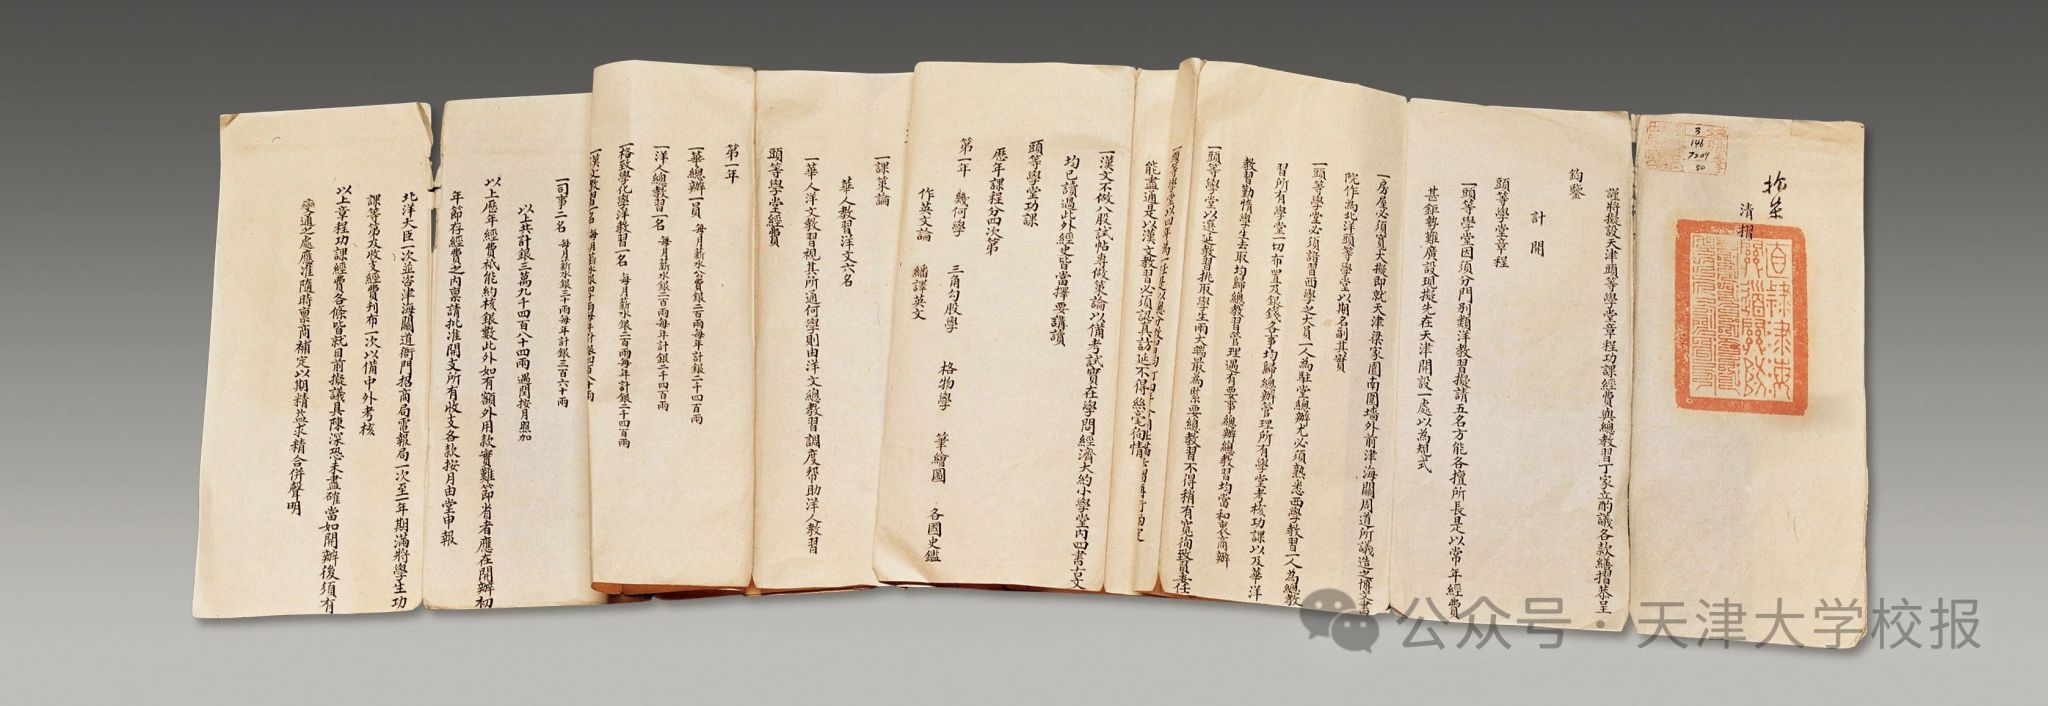 清摺
3
146
7209
50
謹將擬設天津頭等學堂章程功課經費與總教習丁家立酌議各款繕摺恭呈
鈞鑒
計開
頭等學堂章程
一頭等學堂因須分門別類洋教習擬請五名方能各擅所長是以常年經費
甚鉅勢難廣設現擬先在天津開設一處以為規式
一房屋必須寬大擬即就天津梁家園南圍墻外前津海關周道所議造之博文書
院作為北洋頭等學堂以期名副其實
一頭等學堂必須諳習西學之大員一人為駐堂總辦尤必須熟悉西學教習一人為總教
習所有學堂一切布置及銀錢各事均歸總辦管理所有學堂考核功課以及華洋
教習勤惰學生去取均歸總教習管理遇有要事總辦總教習均當和衷商辦
一頭等學堂以選延教習挑取學生兩大端最為緊要總教習不得稍有寬徇致負委任
能盡通是以漢文教習必須認真訪延不得絲毫徇情
一漢文不做八股試帖專做策論以備考試實在學問經濟大約小學堂內四書古文
均已讀過此外經史皆當擇要講讀
頭等學堂功課
歷年課程分四次第
第一年 幾何學 三角勾股學 格物學 筆繪圖 各國史鑑
作英文論 繙譯英文
一課策論
華人教習洋文六名
一華人洋文教習視其所通何學則由洋文總教習調度幫助洋人教習
頭等學堂經費
第一年
一華總辦一員 每月薪水公費銀二百兩每年計銀二千四百兩
一洋人總教習一名 每月薪水銀二百兩每年計銀二千四百兩
一格致學化學洋教習一名 每月薪水銀二百兩每年計銀二千四百兩
一漢文教習一名
一司事二名 每月薪水銀三十兩每年計銀三百六十兩
以上共計銀三萬九千四百八十四兩 遇閏按月照加
以上歷年經費祇能約核銀數此外如有額外用款實難節省者應在開辦初
年節存經費之內稟請批准開支所有收支各款按月由堂申報
北洋大臣一次並咨津海關道衙門招商局電報局一次至一年期滿將學生功
課等第及收支經費刊布一次以備中外考核
以上章程功課經費各條皆就目前擬議具陳深恐未盡確當如開辦後須有
變通之處應准隨時稟商補定以期精益求精合併聲明
公众号·天津大学校报